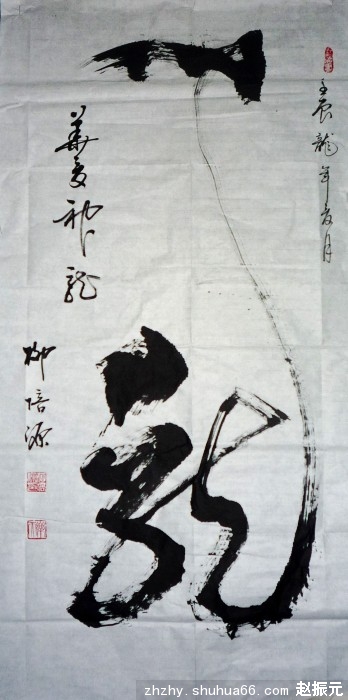 壬辰龍年夏月
龍
華夏神龍
柳培源
zhzhy.shuhua66.com 赵振元